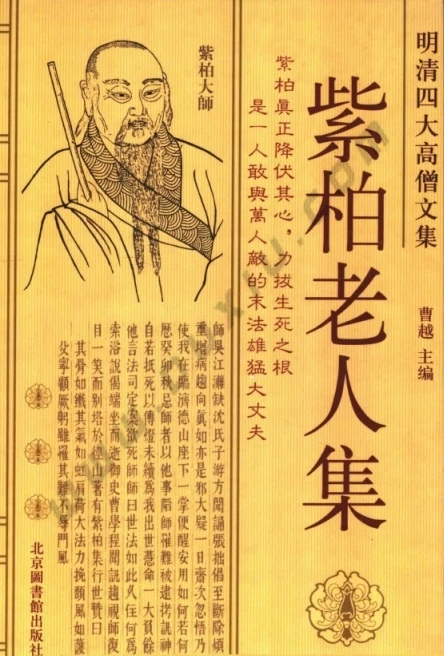 明清四大高僧文集
曹越 主编
紫柏老人集
紫柏眞正降伏其心，力拔生死之根
是一人敢與萬人敵的末法雄猛大丈夫
紫柏大師
師吳江灘缺沈氏子游方聞誦張拙偈至斷除煩
重增病趨向眞如亦是邪大疑一日齋次忽悟乃
使我在臨濟德山座下一掌便醒安用如何若何
歷癸卯秋忌師者以他事陷師罹難被逮拷訊神
自若抵死以傳燈未續爲我出世慧命一大負餘
他言法司定案欲死師師曰世法如此久住何爲
索浴說偈端坐而逝御史曹學程聞說趨視師復
目一笑而別塔於徑山著有紫柏集行世贊曰
其骨如鐵其氣如虹肩荷大法力挽頹風如護
父寧顧厥躬雖罹其難不辱門風
北京圖書館出版社